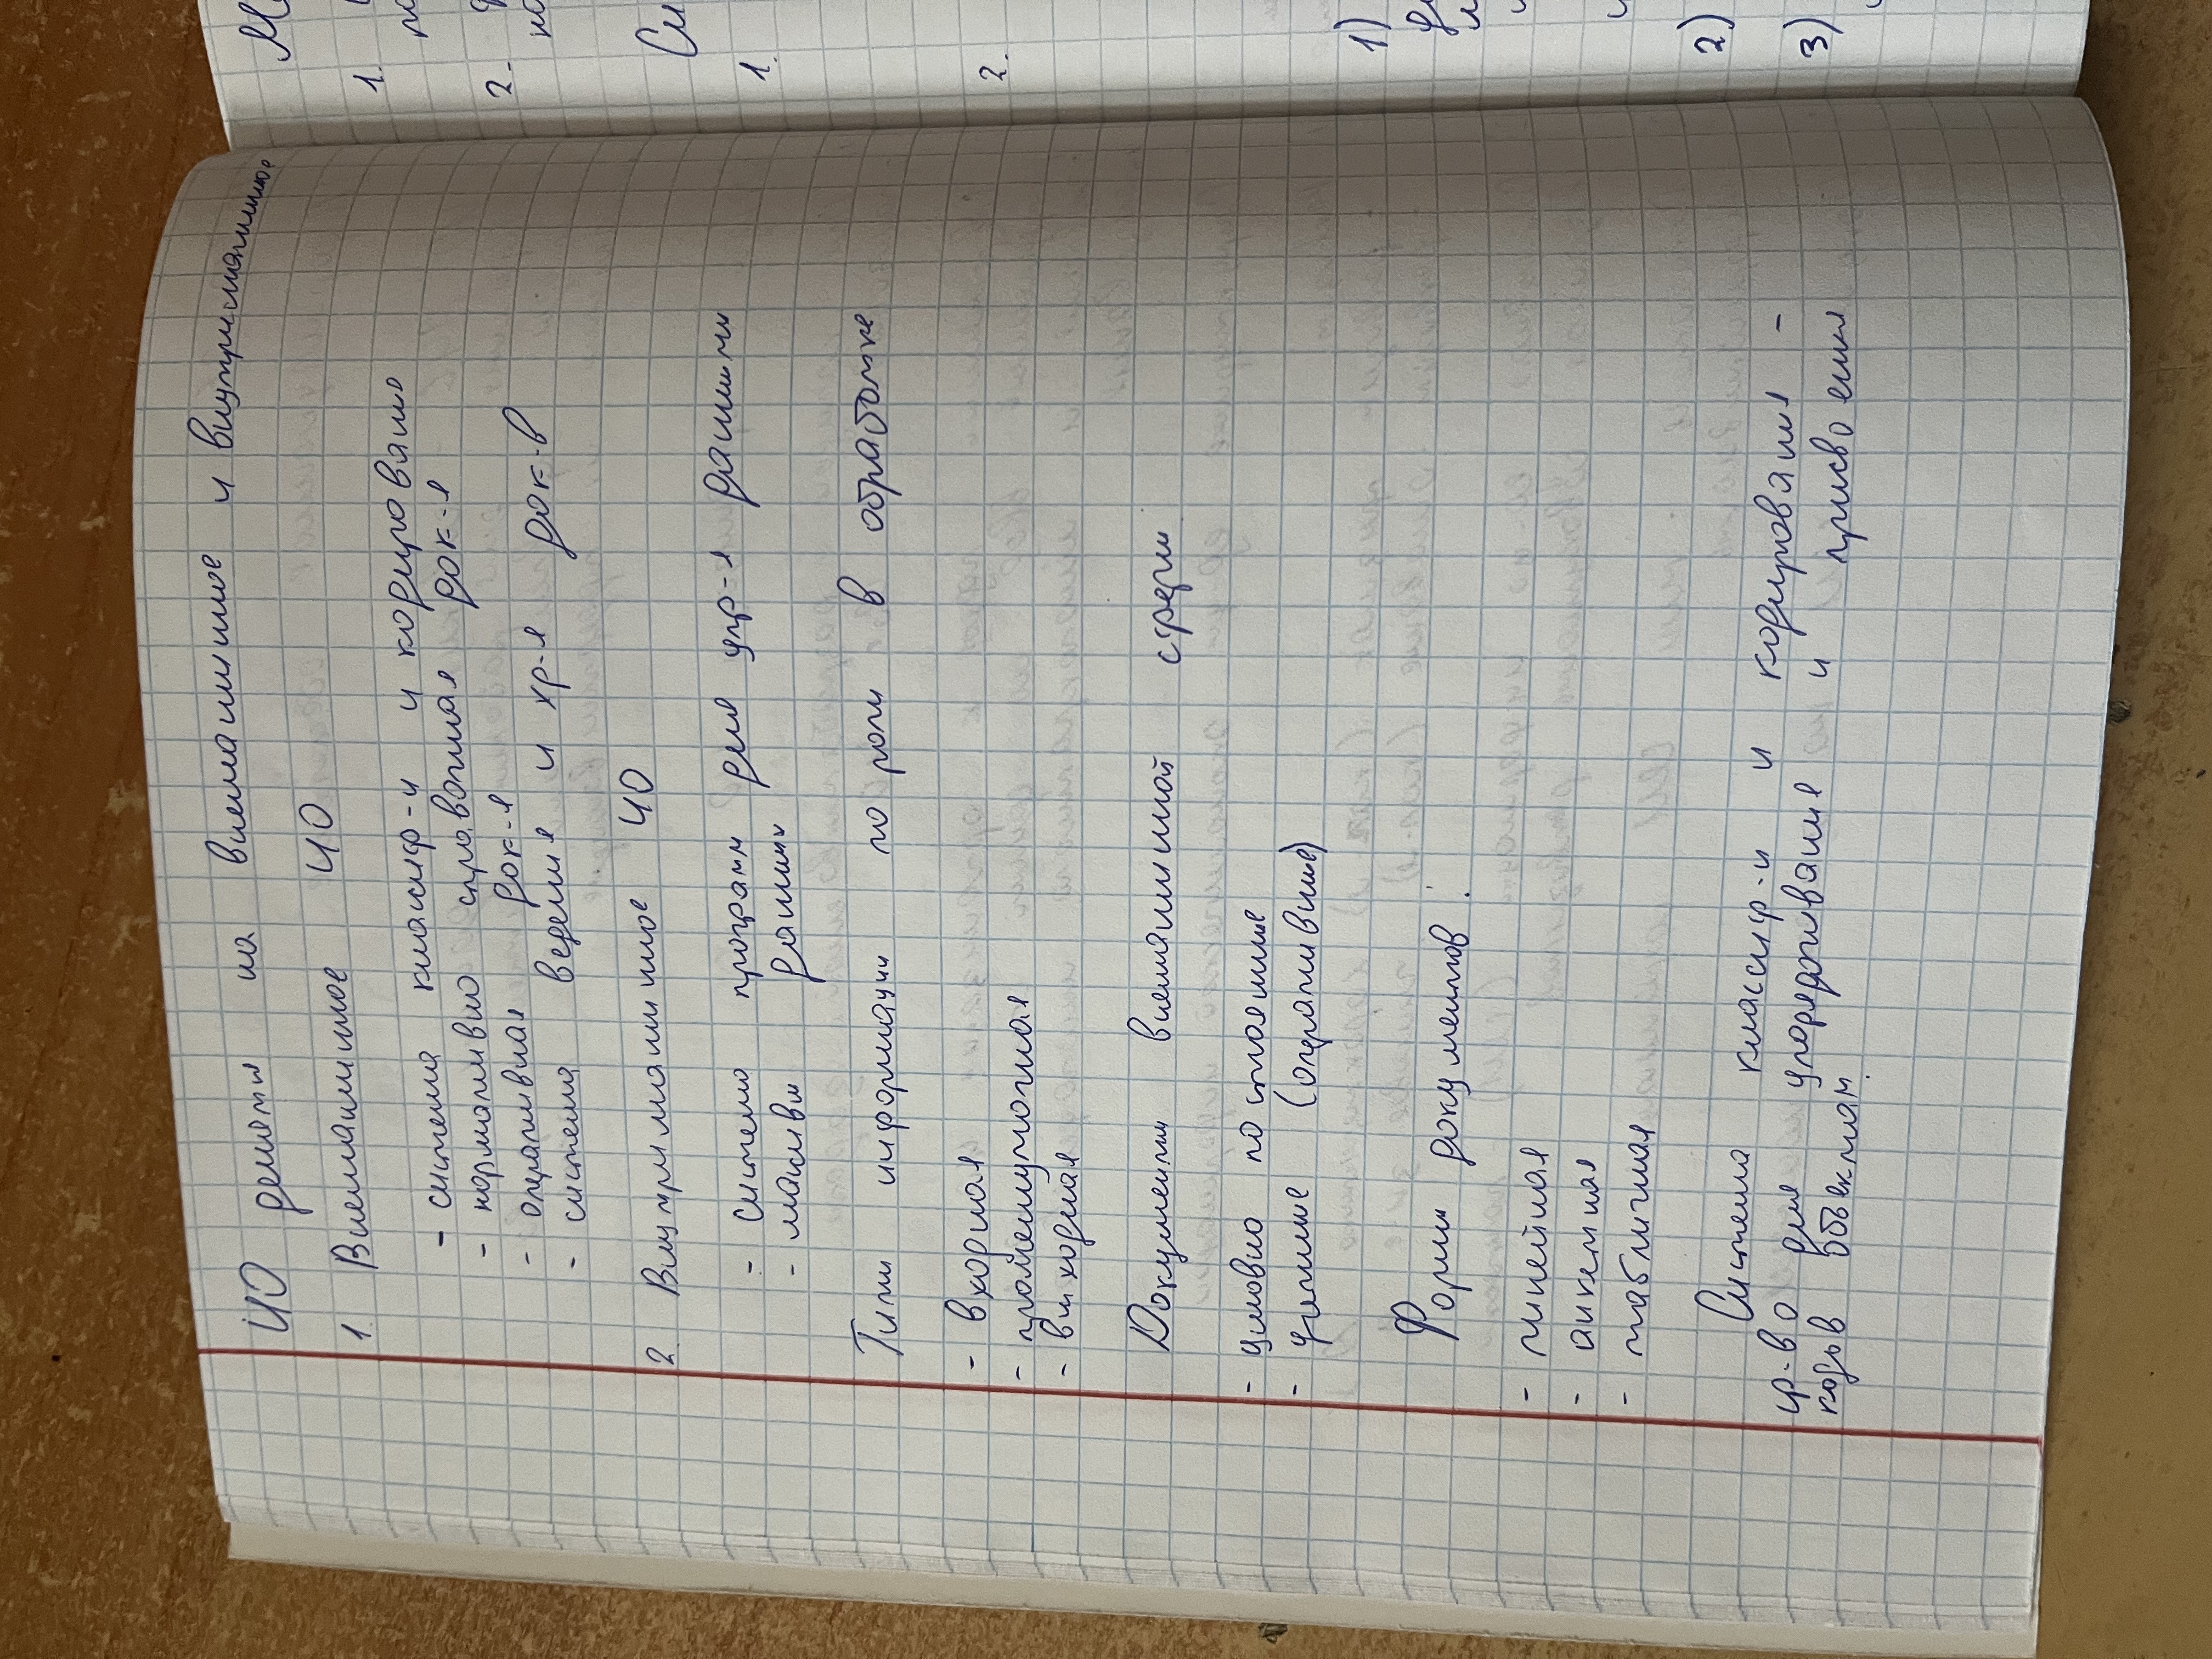 ИО делится на внемашинное и внутримашинное
1. Внемашинное ИО
- система классиф-и и кодирования
- нормативно справочная док-я
- оперативная док-я
- система ведения и хр-я док-в
2. Внутримашинное ИО
- система программ для упр-я данными
- массивы данных
Типы информации по роли в обработке
- входная
- промежуточная
- выходная
Документы внемашинной среды
- условно постоянные
- учетные (оперативные)
Формы документов.
- линейная
- анкетная
- табличная
Система классиф-и и кодирования -
ср-во для упорядочивания и присвоения
кодов объектам.
1.
2.
1.
2.
1)
2)
3)